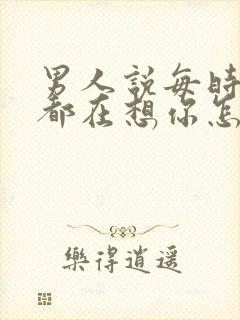 男人說每時
都在想你怎
樂得逍遙